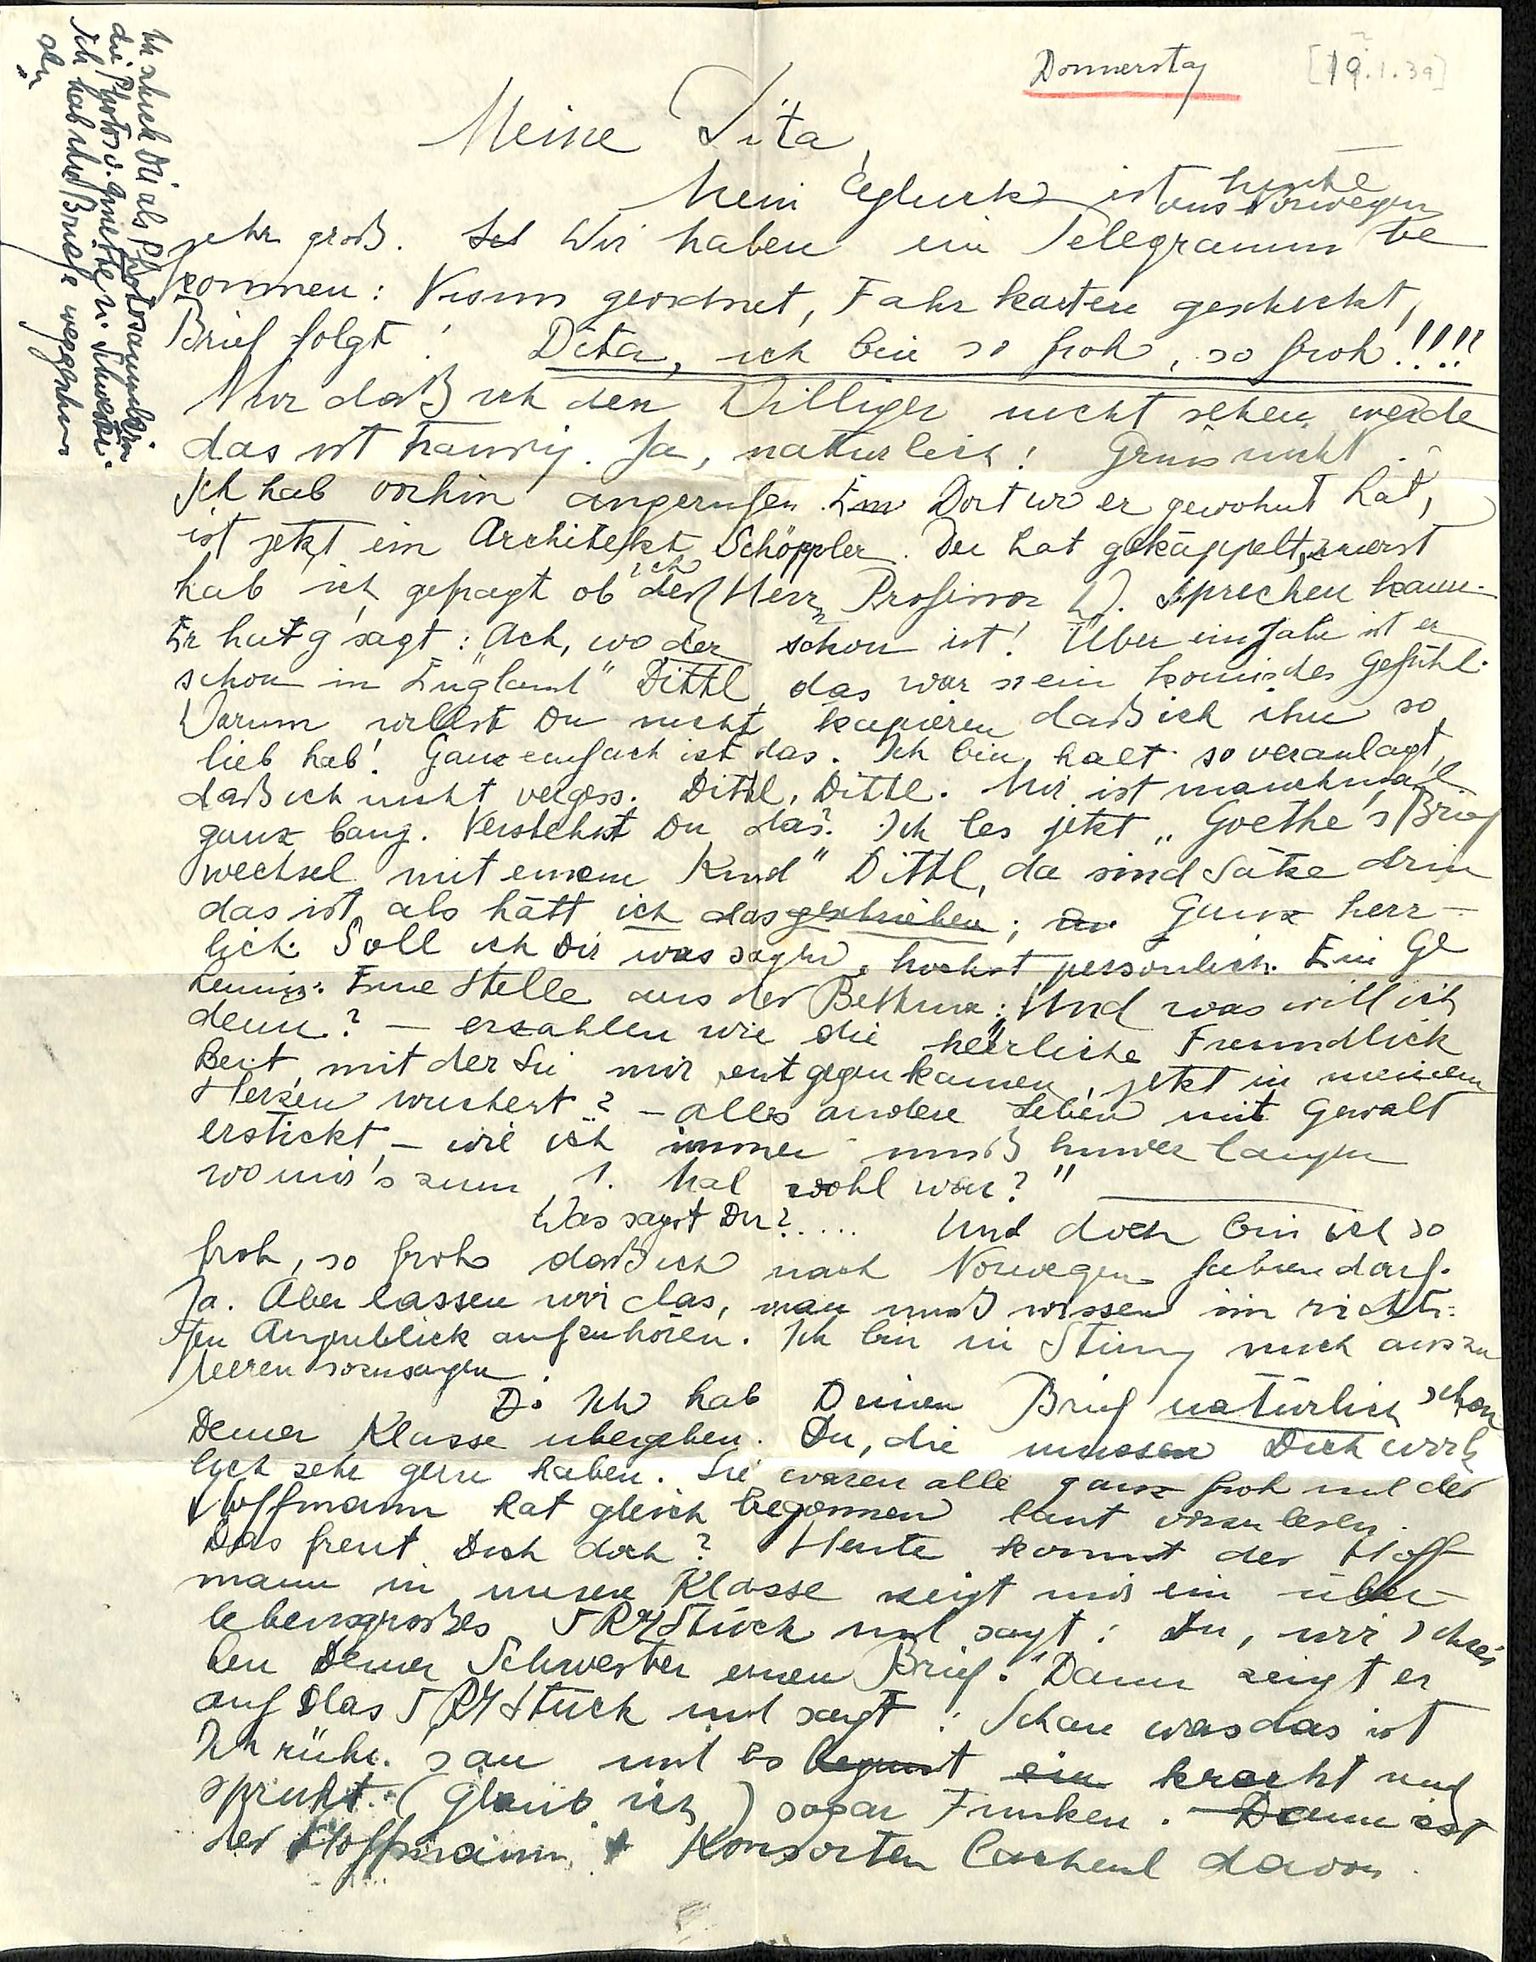 Donnerstag [19.1.39]
Meine Dita,
Mein Glück ist heute
aus Norwegen
sehr groß. Wir haben ein Telegramm be
kommen: Visum geordnet, Fahrkarten geschickt,
Brief folgt! Dita, ich bin so froh, so froh!!!!
Nur daß ich den Williger nicht sehen werde
das ist traurig. Ja, natürlich! Grins nicht.
Ich hab vorhin angerufen. Dort wo er gewohnt hat,
ist jetzt ein Architekt Schöppler. Der hat gekäppelt, zuerst
hab ich gefragt ob ich den Herrn Professor W. sprechen kann.
Er hat g'sagt: "Ach, wo der schon ist! Über ein Jahr ist er
schon in England" Dittl, das war so ein komisches Gefühl.
Warum willst Du nicht kapieren daß ich ihn so
lieb hab! Ganz einfach ist das. Ich bin halt so veranlagt,
daß ich nicht vergess. Dittl, Dittl. Mir ist manchmal
ganz bang. Verstehst Du das? Ich les jetzt "Goethe's Brief
wechsel mit einem Kind" Dittl, da sind Sätze drin
das ist als hätt ich das geschrieben; Ganz herr-
lich. Soll ich Dir was sagen, höchst persönlich. Ein Ge
heimnis: Eine Stelle aus der Bettina: "Und was will ich
denn? – erzählen wie die herrliche Freundlich
keit, mit der Sie mir entgegen kamen, jetzt in meinem
Herzen wuchert? – alles andre Leben mit Gewalt
erstickt – wie ich immer muß hinverlangen
wo mir's zum 1. Mal wohl war?"
Was sagst Du?.... Und doch bin ich so
froh, so froh daß ich nach Norwegen fahren darf.
Ja. Aber lassen wir das, man muß wissen im richti-
gen Augenblick aufzuhören. Ich bin in Stimmg mich auszu
leeren sozusagen.
D. Ich hab Deinen Brief natürlich schon
Deiner Klasse übergeben. Du, die müssen Dich wirk
lich sehr gern haben. Sie waren alle ganz froh und der
Hoffmann hat gleich begonnen laut vorzulesen.
Das freut Dich doch? Heute kommt der Hoff-
mann in unsere Klasse zeigt mir ein über-
lebensgroßes 5 RM Stück und sagt: Du, wir schrei
ben Deiner Schwester einen Brief." Dann zeigt er
auf das 5 RM Stück und sagt: Schau was das ist
Ich rühr's an und es kracht und
sprüht (glaub ich) sogar Funken. Dann ist
der Hoffmann + Konsorten lachend davon.
Ich schick Dir als Photosammlerin
die Photos v. Annette u. Schwester.
Ich hab ihre Briefe weggeben